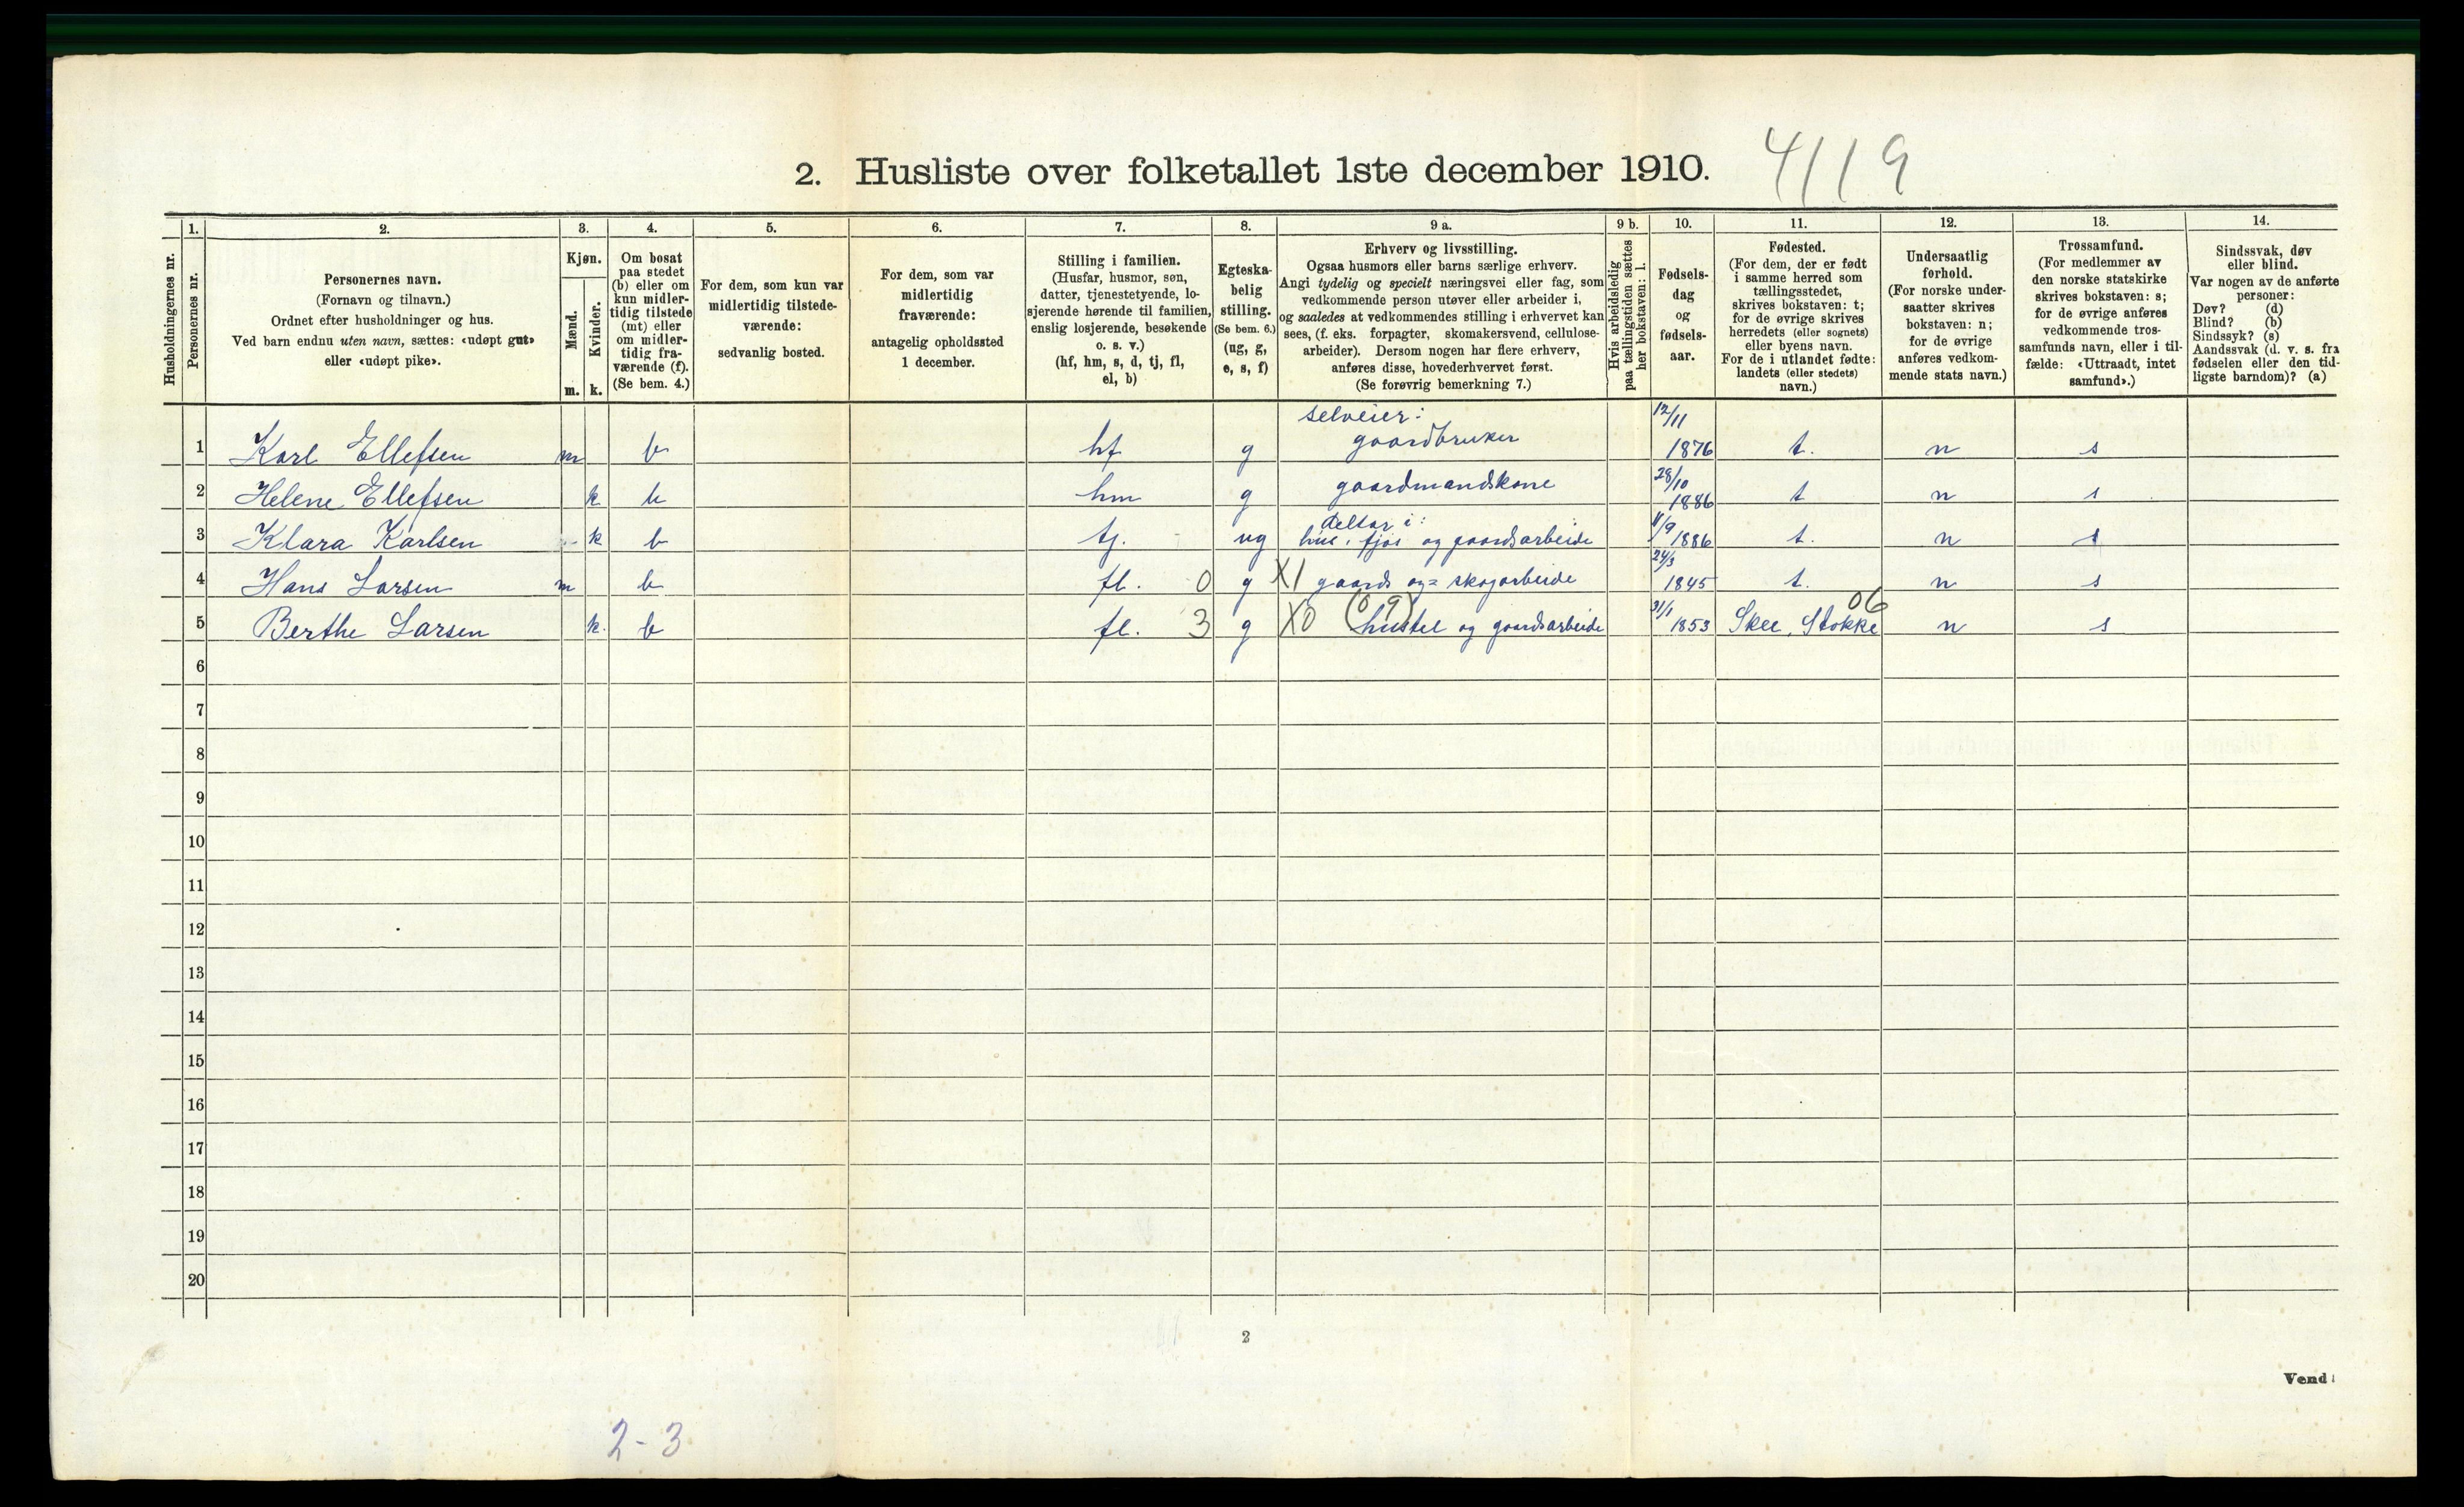 2. Husliste over folketallet 1ste december 1910. 4119
Husholdningernes nr.
1. Personernes nr.
2. Personernes navn.
(Fornavn og tilnavn.)
Ordnet efter husholdninger og hus.
Ved barn endnu uten navn, sættes: «udøpt gut»
eller «udøpt pike».
3. Kjøn.
Mænd. m.
Kvinder. k.
4. Om bosat
paa stedet
(b) eller om
kun midler-
tidig tilstede
(mt) eller
om midler-
tidig fra-
værende (f).
(Se bem. 4.)
5. For dem, som kun var
midlertidig tilstede-
værende:
sedvanlig bosted.
6. For dem, som var
midlertidig
fraværende:
antagelig opholdssted
1 december.
7. Stilling i familien.
(Husfar, husmor, søn,
datter, tjenestetyende, lo-
sjerende hørende til familien,
enslig losjerende, besøkende
o. s. v.)
(hf, hm, s, d, tj, fl,
el, b)
8. Egteska-
belig
stilling.
(Se bem. 6.)
(ug, g,
e, s, f)
9 a. Erhverv og livsstilling.
Ogsaa husmors eller barns særlige erhverv.
Angi tydelig og specielt næringsvei eller fag, som
vedkommende person utøver eller arbeider i,
og saaledes at vedkommendes stilling i erhvervet kan
sees, (f. eks. forpagter, skomakersvend, cellulose-
arbeider). Dersom nogen har flere erhverv,
anføres disse, hovederhvervet først.
(Se forøvrig bemerkning 7.)
9 b. Hvis arbeidsledig
paa tællingstiden sættes
her bokstaven: l.
10. Fødsels-
dag
og
fødsels-
aar.
11. Fødested.
(For dem, der er født
i samme herred som
tællingsstedet,
skrives bokstaven: t;
for de øvrige skrives
herredets (eller sognets)
eller byens navn.
For de i utlandet fødte:
landets (eller stedets)
navn.)
12. Undersaatlig
forhold.
(For norske under-
saatter skrives
bokstaven: n;
for de øvrige
anføres vedkom-
mende stats navn.)
13. Trossamfund.
(For medlemmer av
den norske statskirke
skrives bokstaven: s;
for de øvrige anføres
vedkommende tros-
samfunds navn, eller i til-
fælde: «Uttraadt, intet
samfund».)
14. Sindssvak, døv
eller blind.
Var nogen av de anførte
personer:
Døv? (d)
Blind? (b)
Sindssyk? (s)
Aandssvak (d. v. s. fra
fødselen eller den tid-
ligste barndom)? (a)
1 Karl Ellefsen m b hf g selveier: gaardbruker 12/11 1876 t. n s
2 Helene Ellefsen k b hm g gaardmandskone 28/10 1886 t n s
3 Klara Karlsen k b tj. ug deltar i: hus, fjøs og gaardsarbeide 11/9 1886 t. n s
4 Hans Larsen m b fl. 0 g X1 gaards og= skogarbeide 24/3 1845 t. n s
5 Berthe Larsen k. b fl. 3 g X0 (0 9) hustel og gaardsarbeide 31/1 1853 Skee, Stokke 06 n s
6
7
8
9
10
11
12
13
14
15
16
17
18
19
20
2
Vend!
2-3